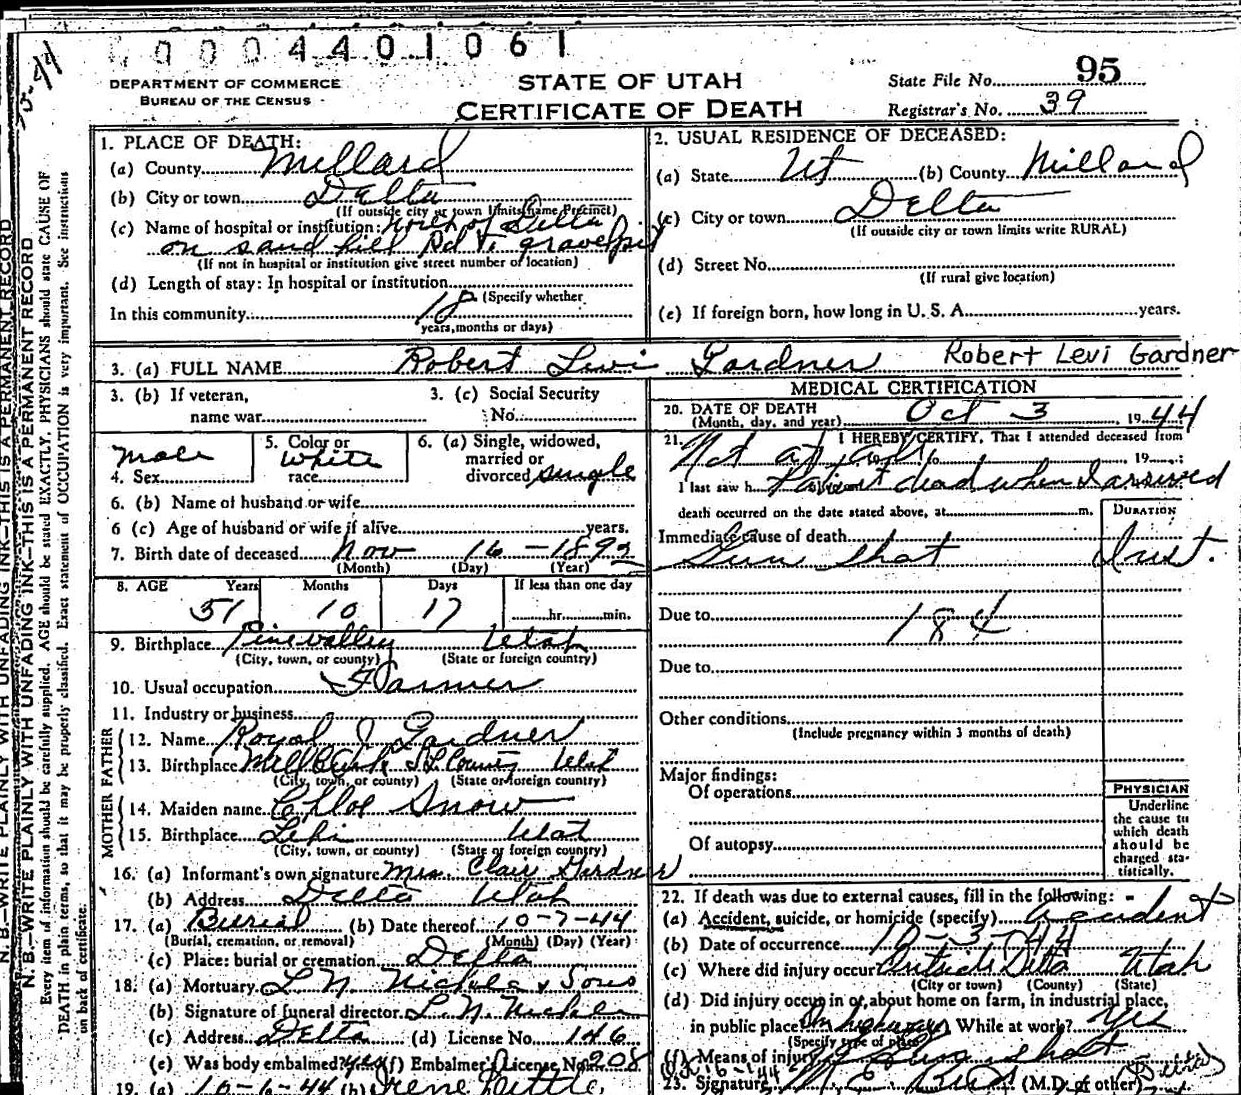 0004401061
DEPARTMENT OF COMMERCE
BUREAU OF THE CENSUS
STATE OF UTAH
CERTIFICATE OF DEATH
State File No. 95
Registrar's No. 39
N. B.—WRITE PLAINLY WITH UNFADING INK—THIS IS A PERMANENT RECORD
N. B.—WRITE PLAINLY WITH UNFADING INK—THIS IS A PERMANENT RECORD
Every item of information should be carefully supplied. AGE should be stated EXACTLY. PHYSICIANS should state CAUSE OF
DEATH in plain terms, so that it may be properly classified. Exact statement of OCCUPATION is very important. See instructions
on back of certificate.
1. PLACE OF DEATH:
(a) County Millard
(b) City or town Delta
(If outside city or town limits name Precinct)
(c) Name of hospital or institution: North of Delta
on sand hill Rd to gravelpit
(If not in hospital or institution give street number or location)
(d) Length of stay: In hospital or institution
(Specify whether
In this community 18
years, months or days)
2. USUAL RESIDENCE OF DECEASED:
(a) State Ut (b) County Millard
(c) City or town Delta
(If outside city or town limits write RURAL)
(d) Street No.
(If rural give location)
(e) If foreign born, how long in U. S. A. years.
3. (a) FULL NAME Robert Levi Gardner Robert Levi Gardner
3. (b) If veteran,
name war
3. (c) Social Security
No.
4. Sex Male
5. Color or
race White
6. (a) Single, widowed,
married or
divorced single
6. (b) Name of husband or wife
6 (c) Age of husband or wife if alive years.
7. Birth date of deceased Nov 16 - 1892
(Month) (Day) (Year)
8. AGE Years Months Days If less than one day
51 10 17 hr. min.
9. Birthplace Pine valley Utah
(City, town, or county) (State or foreign country)
10. Usual occupation Farmer
11. Industry or business
FATHER
12. Name Royal J Gardner
13. Birthplace S L County Utah
(City, town, or county) (State or foreign country)
MOTHER
14. Maiden name Chloe Snow
15. Birthplace Lehi Utah
(City, town, or county) (State or foreign country)
16. (a) Informant's own signature Mrs. Clair Gardner
(b) Address Delta Utah
17. (a) Burial (b) Date thereof 10-7-44
(Burial, cremation, or removal) (Month) (Day) (Year)
(c) Place: burial or cremation Delta
18. (a) Mortuary L. N. Nichols & Sons
(b) Signature of funeral director L. N. Nichols
(c) Address Delta (d) License No. 146
(e) Was body embalmed? yes (f) Embalmer's License No. 208
19. (a) 10-6-44 (b) Irene
MEDICAL CERTIFICATION
20. DATE OF DEATH
(Month, day, and year) Oct 3 1944
21. I HEREBY CERTIFY, That I attended deceased from
Not at all to 19
I last saw h Patient dead when I arrived
death occurred on the date stated above, at m.
DURATION
Immediate cause of death
Gun shot Inst.
Due to 184
Due to
Other conditions
(Include pregnancy within 3 months of death)
Major findings:
Of operations
Of autopsy
PHYSICIAN
Underline
the cause to
which death
should be
charged sta-
tistically.
22. If death was due to external causes, fill in the following:
(a) Accident, suicide, or homicide (specify) Accident
(b) Date of occurrence 10-3-44
(c) Where did injury occur Outside Delta Utah
(City or town) (County) (State)
(d) Did injury occur in or about home on farm, in industrial place,
in public place? On highway While at work? Yes
(Specify type of place)
(f) Means of injury Gun shot
23. Signature (M.D. or other)